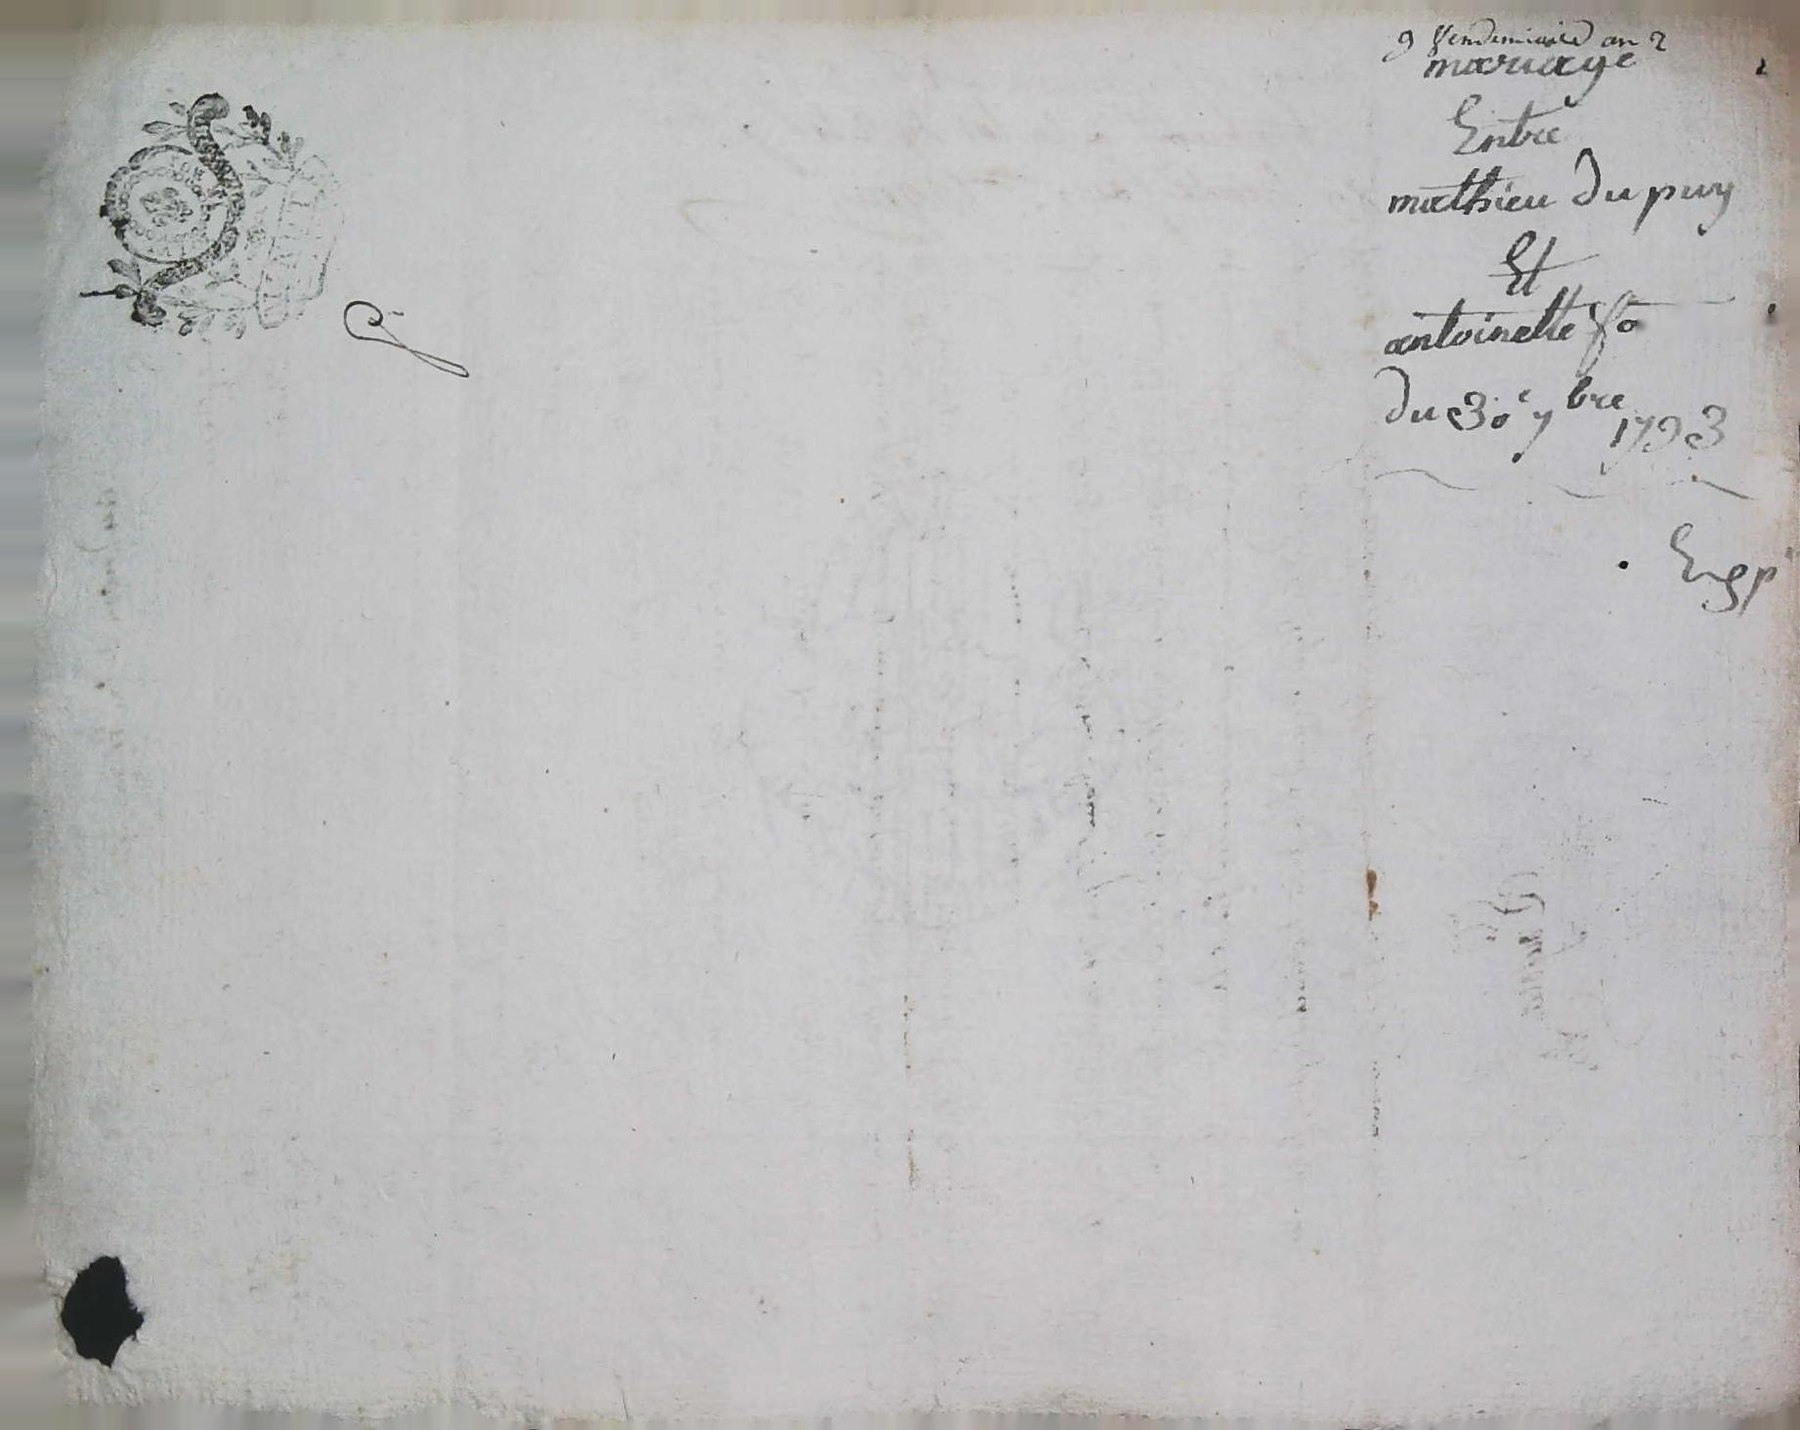 9 Vendemiaire an 2
mariage
Entre
mathieu Dupuy
Et
antoinette
Du 30e 7bre 1793